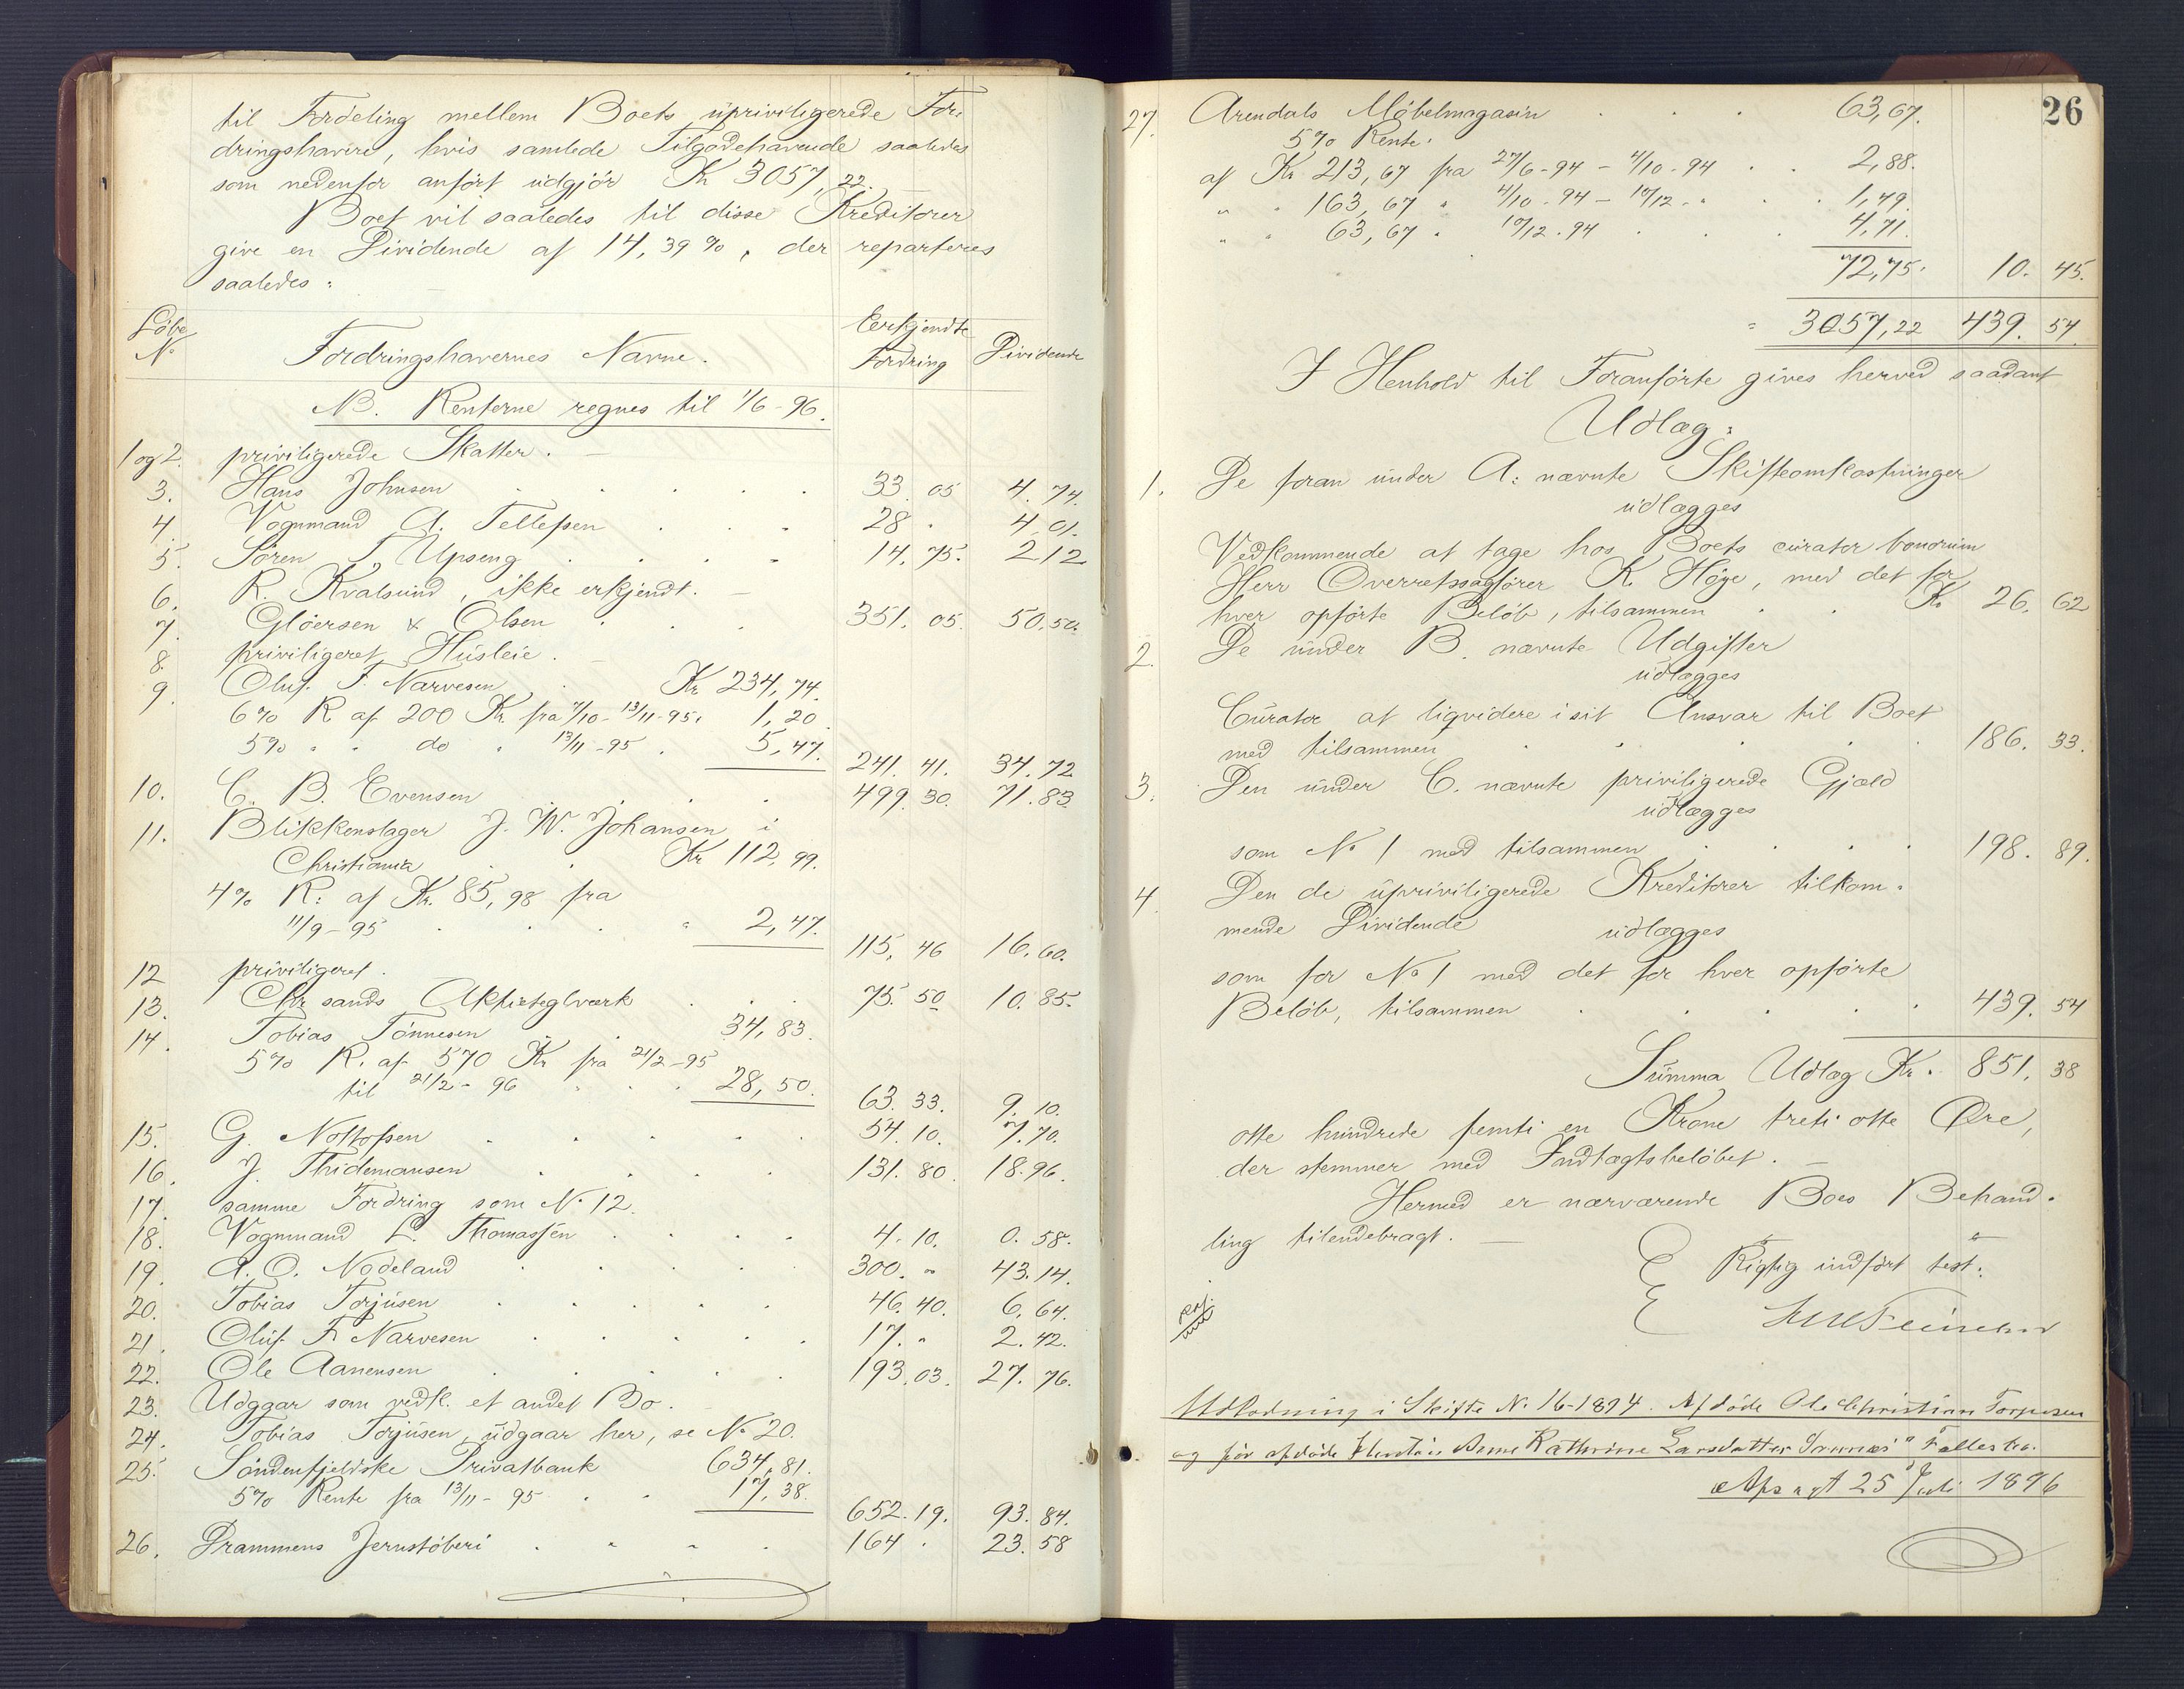 til Fordeling mellem Boets upriviligerede For-
dringshavere, hvis samlede Tilgodehavende saaledes
som nedenfor anført udgjør Kr 3057,22.
Boet vil saaledes til disse Kreditorer
give en Dividende af 14,39 %, der reparteres
saaledes:
Løbe No Fordringshavernes Navne. Erkjendte Fordring Dividende
NB. Renterne regnes til 1/6-96.
1 og 2. priviligerede Skatter.
3. Hans Johnsen 33.05 4.74.
4. Vognmand A. Tellefsen 28 " 4.01.
5. Søren T. Upseng 14.75. 2.12
6. R. Kvalsund, ikke erkjendt.
7. Gløersen & Olsen 351.05. 50.50.
8. priviligeret Husleie.
9. Oluf F. Narvesen Kr 234,74.
6% R af 200 Kr fra 7/10-13/11-95. 1,20
5% " " do " 13/11-95. 5,47. 241.41. 34.72
10. C. B. Evensen 499.30. 71.83
11. Blikkenslager J. W. Johansen i
Christiania Kr 112,99.
4% R: af Kr. 85,98 fra
11/9-95 " 2,47. 115,46 16.60.
12 priviligeret.
13. Chr sands Aktieteglværk 75.50 10.85.
14. Tobias Tønnesen 34,83.
5% R. af 570 Kr fra 21/2-95
til 21/2-96 28,50. 63.33. 9.10.
15. G. Nottofsen 54.10. 7.70.
16. J. Thidemansen 131.80. 18.96.
17. samme Fordring som No 12.
18. Vognmand L. Thomassen 4.10. 0.58.
19. A. O. Nodeland 300. " 43.14.
20. Tobias Torjusen 46.40. 6.64.
21. Oluf F. Narvesen 17. " 2.42.
22. Ole Aanensen 193.03. 27.76.
23. Udgaar som vedk. et andet Bo.
24. Tobias Torjusen, udgaar her, se No 20.
25. Søndenfjeldske Privatbank 634,81.
5% Rente fra 13/11-95 17,38. 652.19. 93.84.
26. Drammens Jernstøberi 164 " 23.58
26
27. Arendals Møbelmagasin 63,67.
5% Rente.
af Kr. 213,67 fra 27/6-94 - 4/10-94 2,88.
" " 163,67 " 4/10-94 - 10/12 " 1,49.
" " 63,67 " 10/12-94 4,71.
72,75. 10.45.
3057,22 439.54.
I Henhold til Foranførte gives herved saadant
Udlæg:
1. De foran under A: nævnte Skifteomkostninger
udlægges
Vedkommende at tage hos Boets curator bonorum
Herr Overretssagfører K. Høye, med det for
hver opførte Beløb, tilsammen Kr 26.62
2. De under B. nævnte Udgifter
udlægges
Curator at liqvidere i sit Ansvar til Boet
med tilsammen 186.33.
3. Den under C. nævnte priviligerede Gjæld
udlægges
som No 1 med tilsammen 198.89.
4. Den de upriviligerede Kreditorer tilkom-
mende Dividende udlægges
som for No 1 med det for hver opførte
Beløb, tilsammen 439.54
Summa Udlæg Kr. 851,38
otte hundrede femti en Krone treti otte Øre,
der stemmer med Indtægtsbeløbet.
Hermed er nærværende Boes Behand-
ling tilendebragt.
Rigtig indført test:
Udlodning i Skifte No 16-1894. Afdøde Ole Christian Torjusen
og før afdøde Hustru Anne Kathrine Larsdatter Fælles bo.
Afsagt 25 Juli 1896